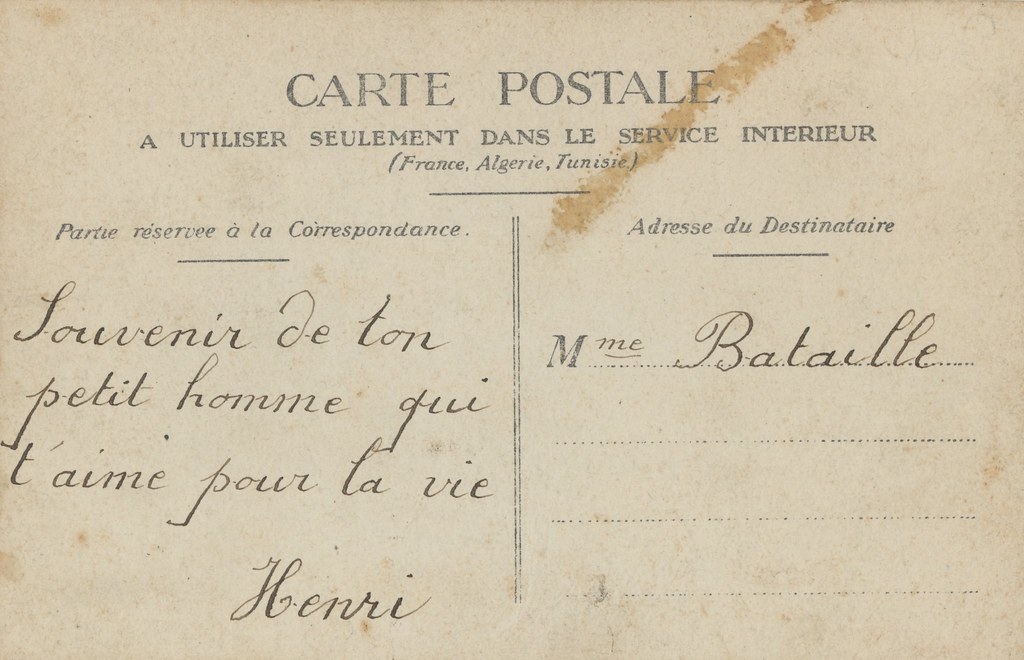 CARTE POSTALE
A UTILISER SEULEMENT DANS LE SERVICE INTERIEUR
(France, Algerie, Tunisie.)
Partie réservee à la Correspondance.
Souvenir de ton
petit homme qui
t'aime pour la vie
Henri
Adresse du Destinataire
Mme Bataille